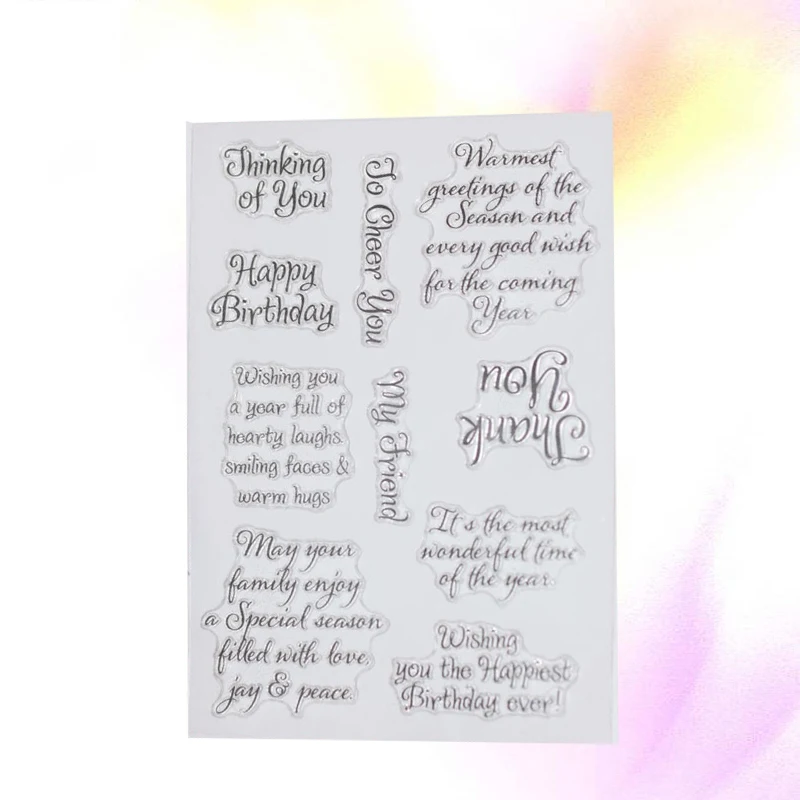 Thinking
of You
To Cheer You
Warmest
greetings of the
Seasan and
every good wish
for the coming
Year
Happy
Birthday
Wishing you
a year full of
hearty laughs.
smiling faces &
warm hugs
My Friend
Thank
You
It's the most
wonderful time
of the year.
May your
family enjoy
a Special season
filled with love,
jay & peace.
Wishing
you the Happiest
Birthday ever!